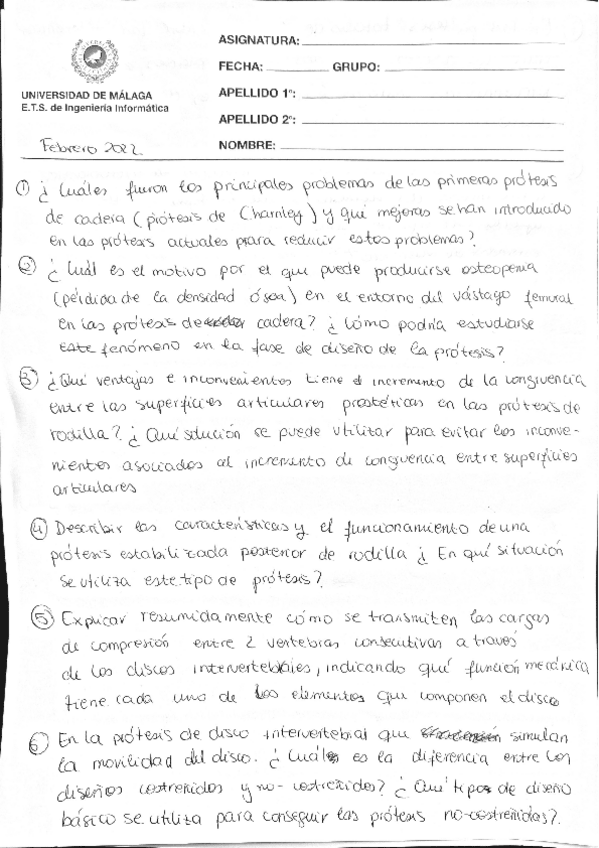 UNIVERSIDAD DE MÁLAGA
E.T.S. de Ingeniería Informática
ASIGNATURA:
FECHA: GRUPO:
APELLIDO 1º:
APELLIDO 2º:
NOMBRE:
Febrero 2022
① ¿Cuáles fueron los principales problemas de las primeras prótesis
de cadera (prótesis de Charnley) y qué mejoras se han introducido
en las prótesis actuales para reducir estos problemas?
② ¿Cuál es el motivo por el que puede producirse osteopenia
(pérdida de la densidad ósea) en el entorno del vástago femoral
en las prótesis de cadera? ¿Cómo podría estudiarse
este fenómeno en la fase de diseño de la prótesis?
③ ¿Qué ventajas e inconvenientes tiene el incremento de la congruencia
entre las superficies articulares prostéticas en las prótesis de
rodilla? ¿Qué solución se puede utilizar para evitar los inconve-
nientes asociados al incremento de congruencia entre superficies
articulares
④ Describir las características y el funcionamiento de una
prótesis estabilizada posterior de rodilla ¿En qué situación
se utiliza este tipo de prótesis?
⑤ Explicar resumidamente cómo se transmiten las cargas
de compresión entre 2 vertebras consecutivas a través
de los discos intervertebrales, indicando qué función mecánica
tiene cada uno de los elementos que componen el disco
⑥ En la prótesis de disco intervertebral que simulan
la movilidad del disco. ¿Cuál es la diferencia entre los
diseños costreñidos y no-costreñidos? ¿Qué tipo de diseño
básico se utiliza para conseguir las prótesis no-costreñidas?.